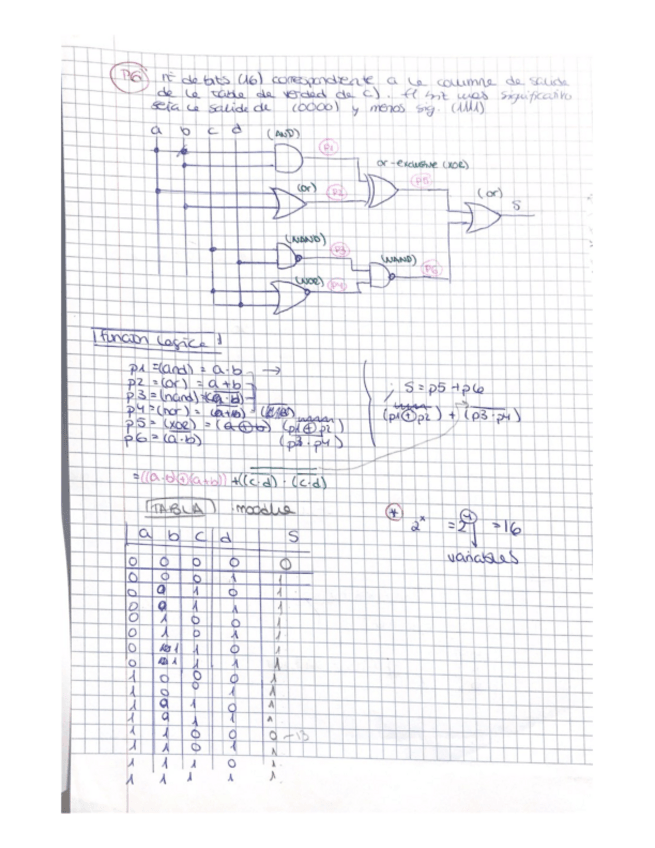 P6 nº de bits (16) correspondiente a la columna de salida
de la tabla de verdad de c). El bit mas significativo
seria la salida de (0000) y menos sig. (1111)
a b c d (AND)
P1
or-exclusive (XOR)
(or) P2 P5 (or) S
(NAND) P3 (NAND)
(NOR) P4 P6
funcion logica
p1 = (and) = a·b →
p2 = (or) = a+b
p3 = (nand) =
p4 = (nor) =
p5 = (xor) = (a⊕b) (p1⊕p2)
p6 = (a·b) (p3·p4)
; S = p5 + p6
(p1⊕p2) + (p3·p4)
= ((a·b)⊕(a+b)) + ((c·d)·(c+d)
TABLA · moodle
* 2ˣ = 2⁴ = 16
variables
a b c d S
0 0 0 0 0
0 0 0 1 1
0 0 1 0 1
0 0 1 1 1
0 1 0 0 1
0 1 0 1 1
0 1 1 0 1
0 1 1 1 1
1 0 0 0 1
1 0 0 1 1
1 0 1 0 1
1 0 1 1 1
1 1 0 0 0 - 13
1 1 0 1 1
1 1 1 0 1
1 1 1 1 1